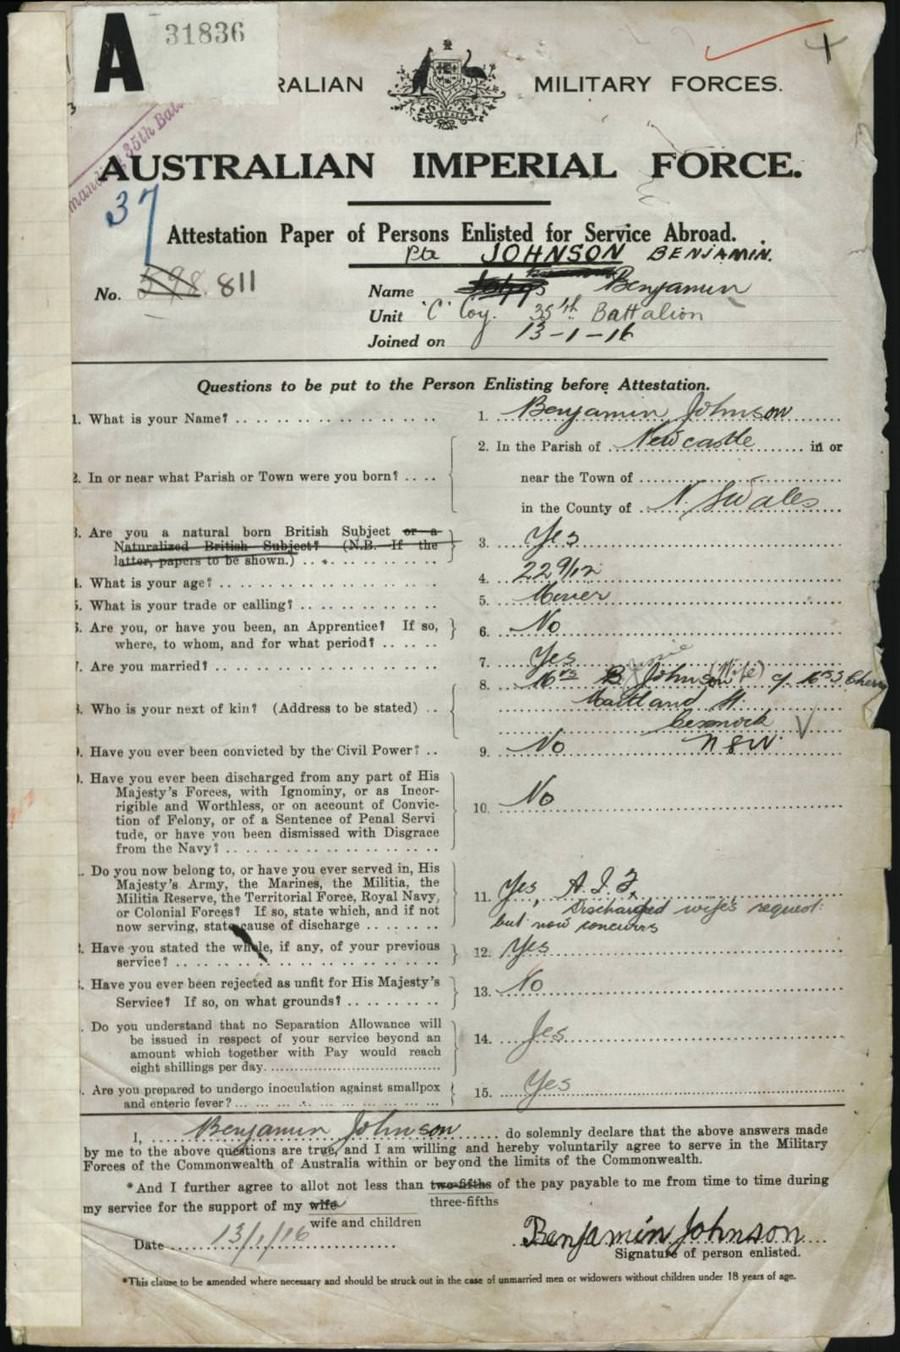 A 31836
RALIAN MILITARY FORCES.
35th Bat
AUSTRALIAN IMPERIAL FORCE.
37
Attestation Paper of Persons Enlisted for Service Abroad.
Pte JOHNSON BENJAMIN.
No. 598. 811
Name Benjamin
Unit "C" Coy. 35th Battalion
Joined on 13-1-16
Questions to be put to the Person Enlisting before Attestation.
1. What is your Name? 1. Benjamin Johnson
2. In the Parish of Newcastle in or
2. In or near what Parish or Town were you born? near the Town of
in the County of N. S Wales
3. Are you a natural born British Subject or a
Naturalized British Subject? (N.B. If the 3. Yes
latter, papers to be shown.)
4. What is your age? 4. 22 9/12
5. What is your trade or calling? 5. Miner
6. Are you, or have you been, an Apprentice? If so, 6. No
where, to whom, and for what period?
7. Are you married? 7. Yes
8. Mrs B Johnson (Wife)
8. Who is your next of kin? (Address to be stated) Maitland St.
Cessnock
9. Have you ever been convicted by the Civil Power? 9. No NSW
. Have you ever been discharged from any part of His
Majesty's Forces, with Ignominy, or as Incor-
rigible and Worthless, or on account of Convic- 10. No
tion of Felony, or of a Sentence of Penal Servi
tude, or have you been dismissed with Disgrace
from the Navy?
. Do you now belong to, or have you ever served in, His
Majesty's Army, the Marines, the Militia, the
Militia Reserve, the Territorial Force, Royal Navy, 11. Yes, A.I.F.
or Colonial Forces? If so, state which, and if not Discharged wife's request:
now serving, state cause of discharge but now concurrs
. Have you stated the whole, if any, of your previous 12. Yes
service?
. Have you ever been rejected as unfit for His Majesty's 13. No
Service? If so, on what grounds?
. Do you understand that no Separation Allowance will
be issued in respect of your service beyond an 14. Yes
amount which together with Pay would reach
eight shillings per day.
. Are you prepared to undergo inoculation against smallpox 15. Yes
and enteric fever?
I, Benjamin Johnson do solemnly declare that the above answers made
by me to the above questions are true, and I am willing and hereby voluntarily agree to serve in the Military
Forces of the Commonwealth of Australia within or beyond the limits of the Commonwealth.
*And I further agree to allot not less than two-fifths of the pay payable to me from time to time during
three-fifths
my service for the support of my wife
wife and children
Date 13/1/16 Benjamin Johnson
Signature of person enlisted.
*This clause to be amended where necessary and should be struck out in the case of unmarried men or widowers without children under 18 years of age.